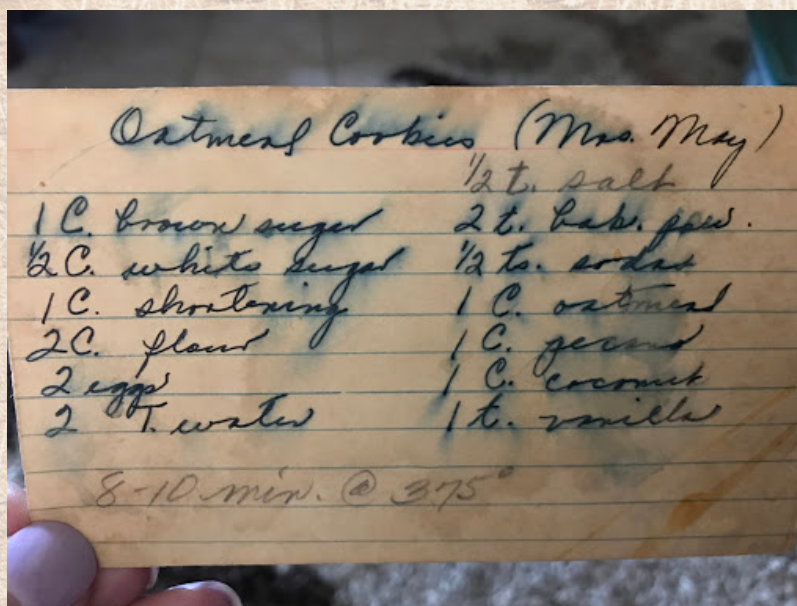 Oatmeal Cookies (Mrs. May)
1/2 t. salt
1 C. brown sugar
1/2 C. white sugar
1 C. shortening
2 C. flour
2 eggs
2 T. water
2 t. bak. pow.
1/2 ts. soda
1 C. oatmeal
1 C. pecans
1 C. coconut
1 t. vanilla
8-10 min. @ 375°